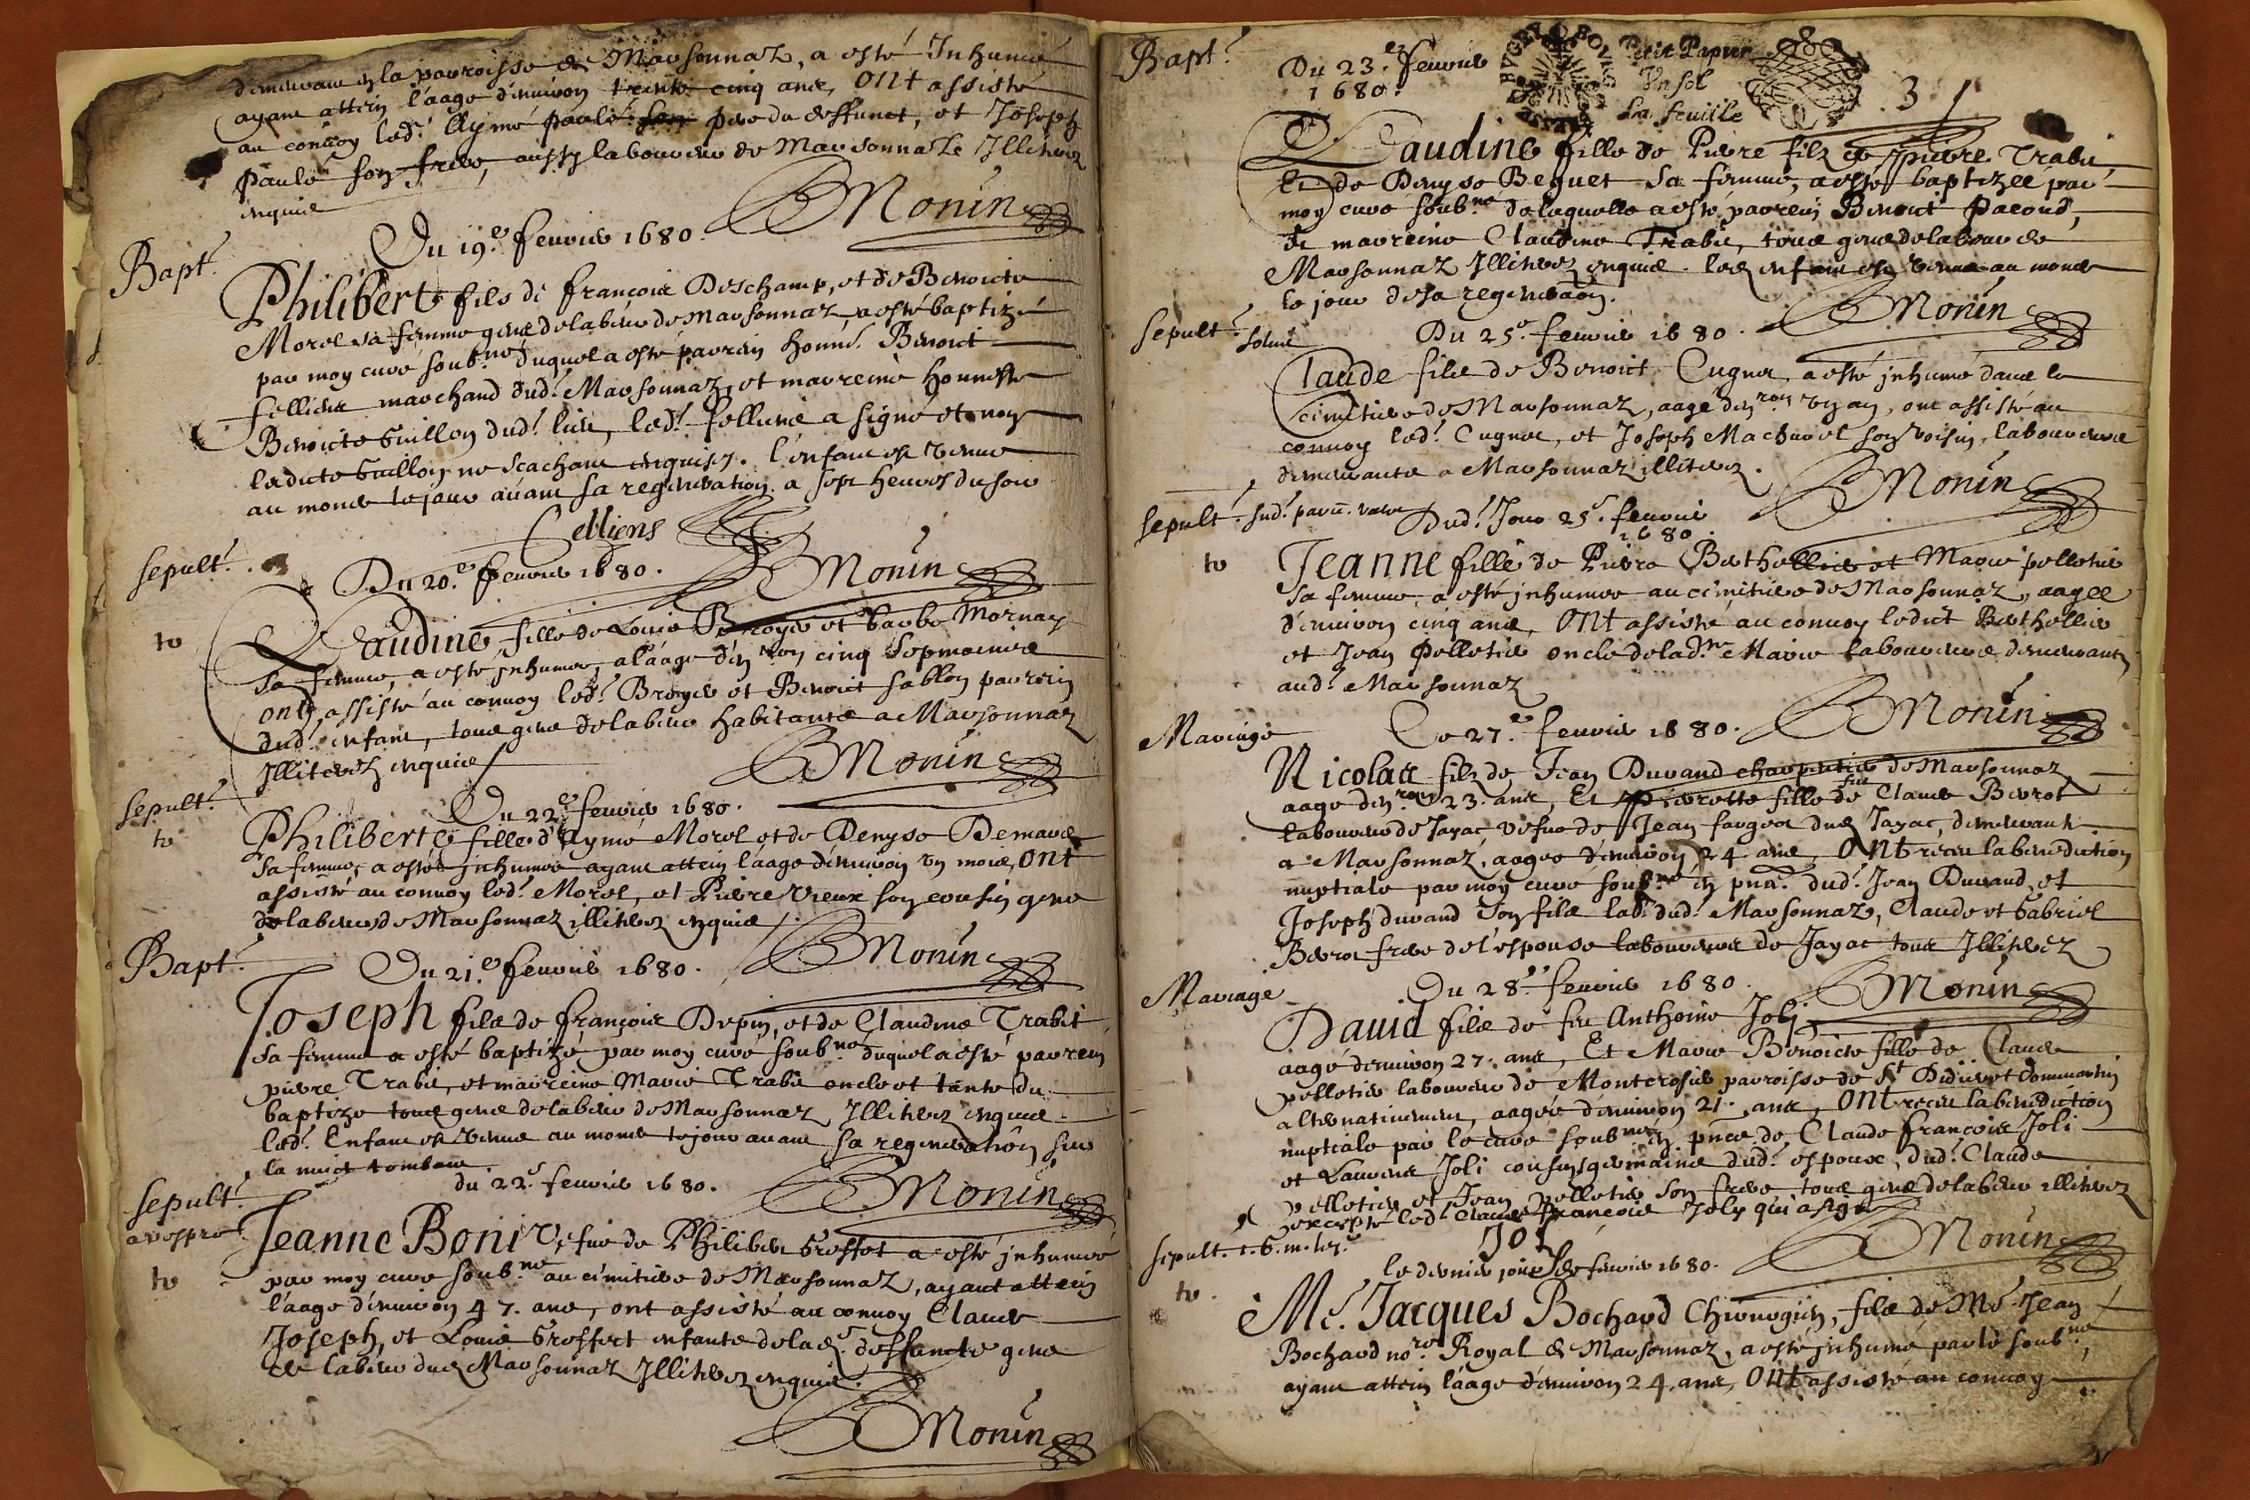 demeurant en la parroisse de Marsonnaz, a esté Inhumé
ayant attein l'aage d'environ trente cinq ans, Ont assisté
au convoy led.t Aymé paulé pere du deffunct, et Joseph
paulé son frere, aussy laboureur de Marsonnaz Illiterez
enquis
BMonin
Bapt.t
Du 19.e feuvrier 1680.
Philiberte fils de françois Deschamp, et de Benoicte
Morel sa femme gens de labeur de Marsonnaz, a esté baptizé
par moy curé soub.né duquel a esté parrein honn. Benoict
felliens marchand dud.t Marsonnaz, et marreine honneste
Benoicte Guillon dud.t lieu, led.t felliens a signé et non
ladicte Guillon ne scachant enquise. l'enfant est venu
au monde le jour avant sa regeneration a sept heures du soir
felliens
BMonin
sepult.t
Du 20.e feuvrier 1680.
to
Claudine, fille de Louis Broyer et barbe Mornay
sa femme, a esté inhumee, a l'aage d'en.ron cinq sepmaines
ont assisté au convoy led.t Broyer et Benoict sablon parrein
dud.t enfant, tous gens de labeur habitants a Marsonnaz
Illiterez enquis
BMonin
sepult.t
Du 22.e feuvrier 1680.
to
Philiberte fille d'Aymé Morel et de Denyse Demares
sa femme, a esté inhumee ayant attein l'aage d'environ un mois, Ont
assisté au convoy led.t Morel, et Pierre vieux son cousin gens
de labeur de Marsonnaz illiterez enquis
BMonin
Bapt.t
Du 21.e feuvrier 1680.
Joseph fils de françois Depin, et de Claudine Trabit
sa femme a esté baptizé par moy curé soub.né duquel a esté parrein
pierre Trabit, et marreine Marie Trabit oncle et tante du
baptizé tous gens de labeur de Marsonnaz, Illiterez enquis
led.t Enfant est venu au monde le jour avant sa regeneration sur
la nuict tombant.
BMonin
sepult.t
du 22.e feuvrier 1680.
a vespre
to
Jeanne Boni vefue de Philibert Groffot a esté inhumee
par moy curé soub.né au cimitiere de Marsonnaz, ayant attein
l'aage d'environ 47. ans, ont assisté au convoy Claude
Joseph, et Louis Groffert enfants de lad. deffuncte gens
de labeur dud Marsonnaz Illiterez enquis.
BMonin
Bapt.t
Du 23.e feuvrier
1680.
Petit Papier
Un sol
La feuille
3
Claudine fille de Pierre filz de pierre Trabit
et de Denyse Beguet sa femme, a esté baptizée par
moy curé soub.né de laquelle a esté parrein Benoict Pacoud,
et marreine Claudine Trabit, tous gens de labeur de
Marsonnaz Illiterez enquis. led enfant est venu au monde
le jour de sa regeneraôn.
BMonin
sepult.t
Du 25.e feuvrier 1680.
Claude filz de Benoict Cugnet, a esté inhumé dans le
cimitiere de Marsonnaz, aagé d'en.ron un an, ont assisté au
convoy led.t Cugnet, et Joseph Machurel son voisin, laboureurs
demeurants a Marsonnaz illiterez.
BMonin
sepult.t
Dud.t Jour 25.e feuvrier
1680.
to
Jeanne fille de Pierre Bethellier et Marie pelletier
sa femme, a esté inhumee au cimitiere de Marsonnaz, aagee
d'environ cinq ans, Ont assisté au convoy ledict Bethellier
et Jean Pelletier oncle de lad.te Marie laboureurs demeurants
aud.t Marsonnaz
BMonin
Mariage
Le 27.e feuvrier 1680.
Nicolas filz de Jean Durand charpentier de Marsonnaz
aagé d'en.ron 23. ans, Et Pierrette fille de feu Claude Berrot
laboureur de Jayac vefue de Jean farges dud Jayac, demeurant
a Marsonnaz, aagee d'environ 24 ans, Ont receu la benediction
nuptiale par moy curé soub.né en pnce. dud.t Jean Durand, et
Joseph durand son filz lab.r dud.t Marsonnaz, Claude et Gabriel
Berrot freres de l'espouse laboureurs de Jayac tous Illiterez
BMonin
Mariage
Du 28.e feuvrier 1680.
David filz de feu Anthoine Joli
aagé d'environ 27. ans, Et Marie Benoicte fille de Claude
pelletier laboureur de Montcrosier parroisse de St Didier et Dommartin
alternativement, aagée d'environ 21. ans, Ont receu la benediction
nuptiale par le curé soub.né en pnce de Claude françois Joli
et Laurent Joli cousins germains dud.t espoux, dud.t Claude
pelletier et Jean pelletier son frere tous gens de labeur illiterez
excepté led.t Claude françois Joly qui a signé
Joly
BMonin
sepult.t
le dernier jour de fevrier 1680.
to.
Me. Jacques Bochard Chirurgien, filz de Me. Jean
Bochard no.re Royal de Marsonnaz, a esté inhumé par le soub.né,
ayant attein l'aage d'environ 24. ans, Ont assisté au convoy